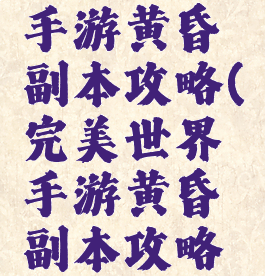 手游黄昏
副本攻略(
完美世界
手游黄昏
副本攻略